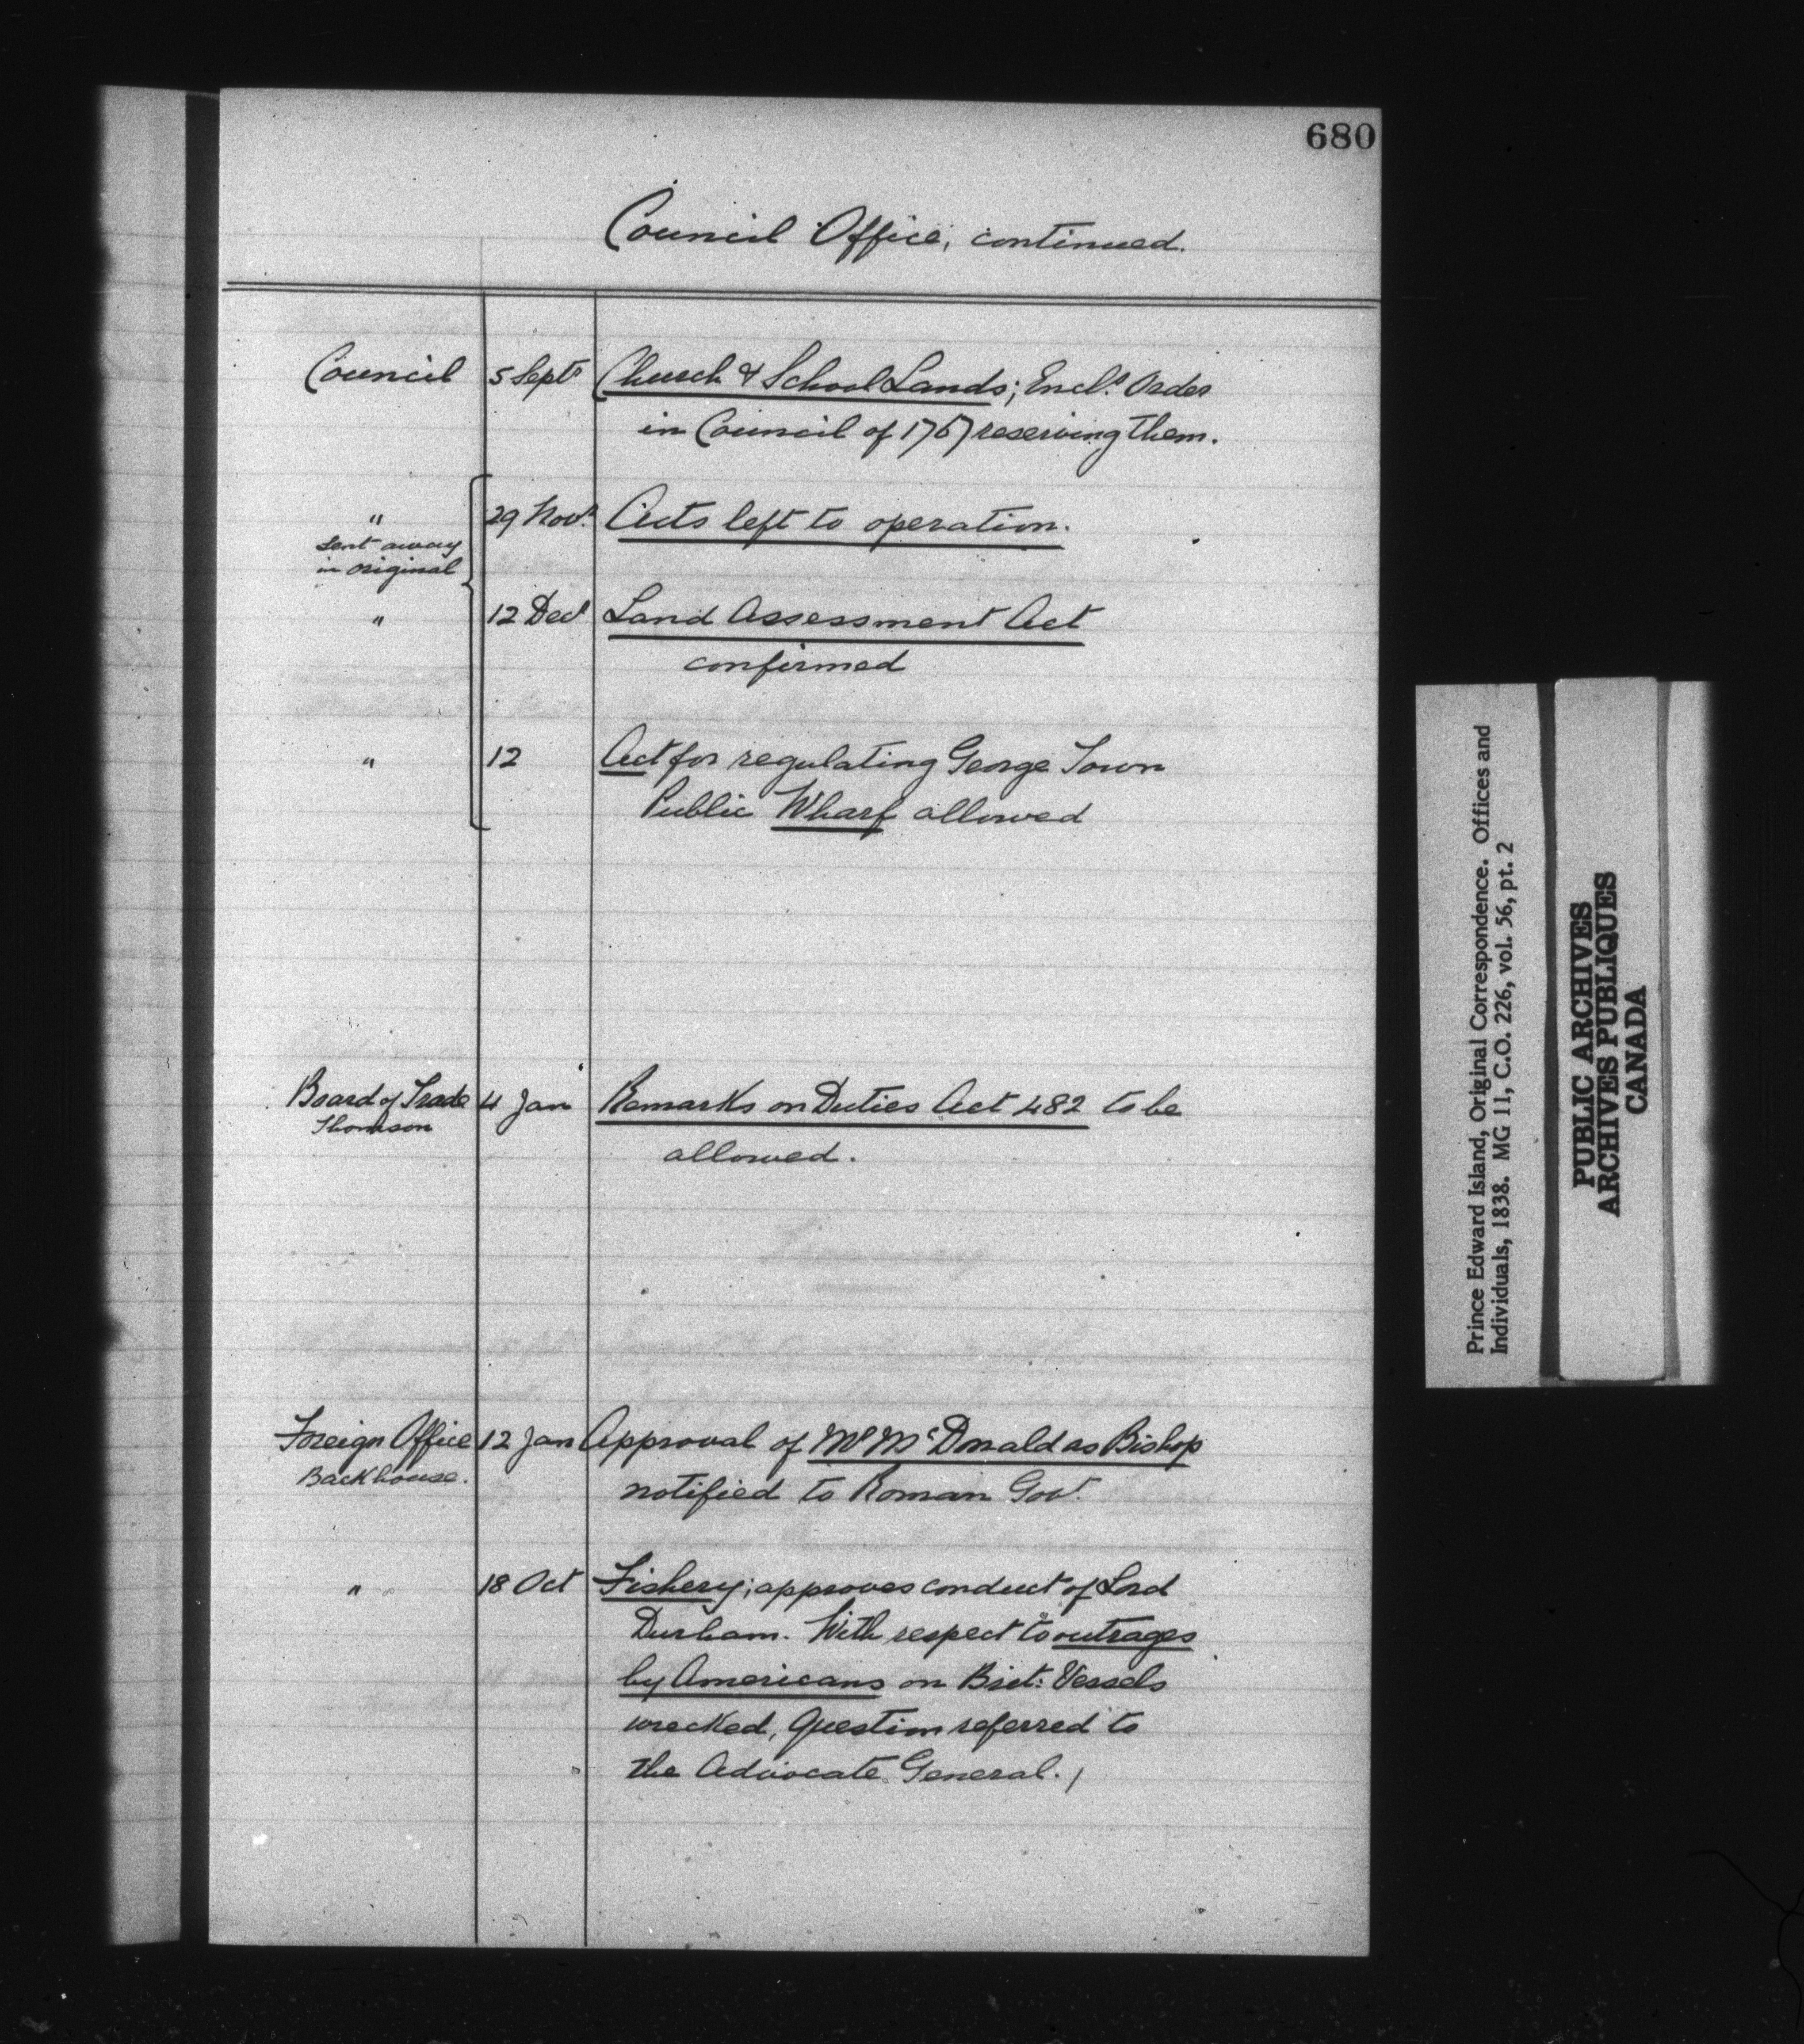 680
Council Office, continued.
Council 5 Sept. Church & School Lands; Encl.s Order
in Council of 1767 reserving them.
" 29 Nov.r Acts left to operation.
Sent away
in original
" 12 Decr Land Assessment Act
confirmed
" 12 Act for regulating George Town
Public Wharf allowed
Board of Trade 4 Jan Remarks on Duties Act 482 to be
Thomson
allowed.
Foreign Office 12 Jan Approval of Mr McDonald as Bishop
Backhouse.
notified to Roman Govt.
" 18 Oct Fishery; approves conduct of Lord
Durham. With respect to outrages
by Americans on Brit: Vessels
wrecked, Question referred to
the Advocate General.
Prince Edward Island, Original Correspondence. Offices and
Individuals, 1838. MG 11, C.O. 226, vol. 56, pt. 2
PUBLIC ARCHIVES
ARCHIVES PUBLIQUES
CANADA